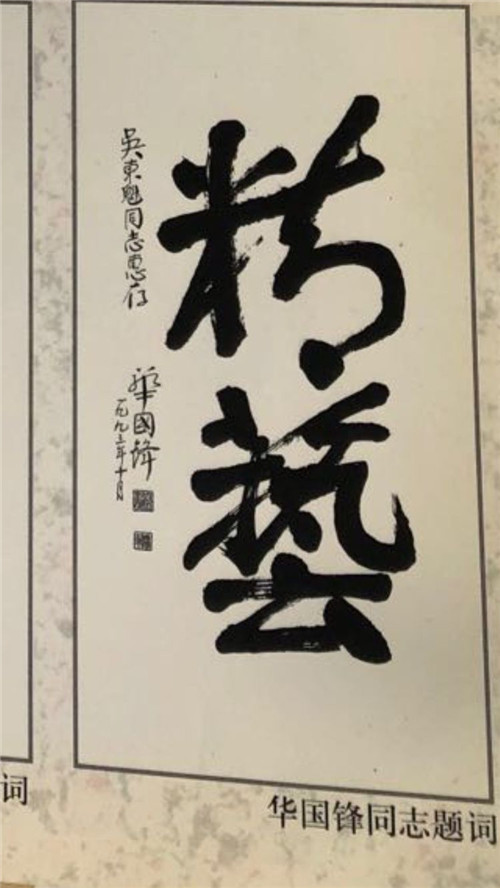 精藝
吳東魁同志惠存
華國鋒
一九九三年十月
华国锋同志题词
词